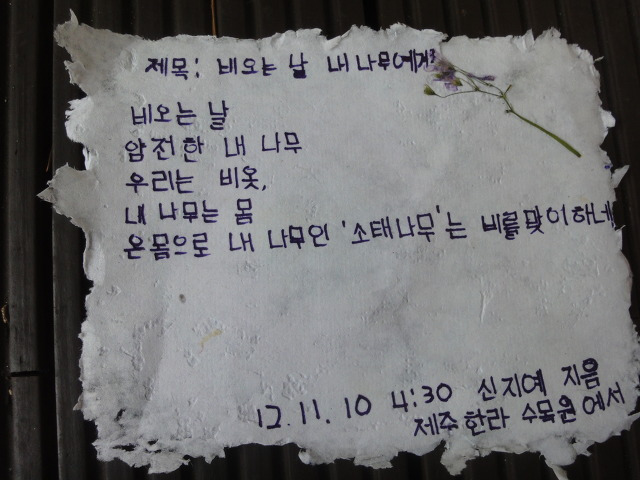 제목: 비오는 날 내 나무에게
비오는 날
얌전한 내 나무
우리는 비옷,
내 나무는 몸
온몸으로 내 나무인 '소태나무'는 비를맞이하네
12.11.10 4:30 신지예 지음
제주한라 수목원에서